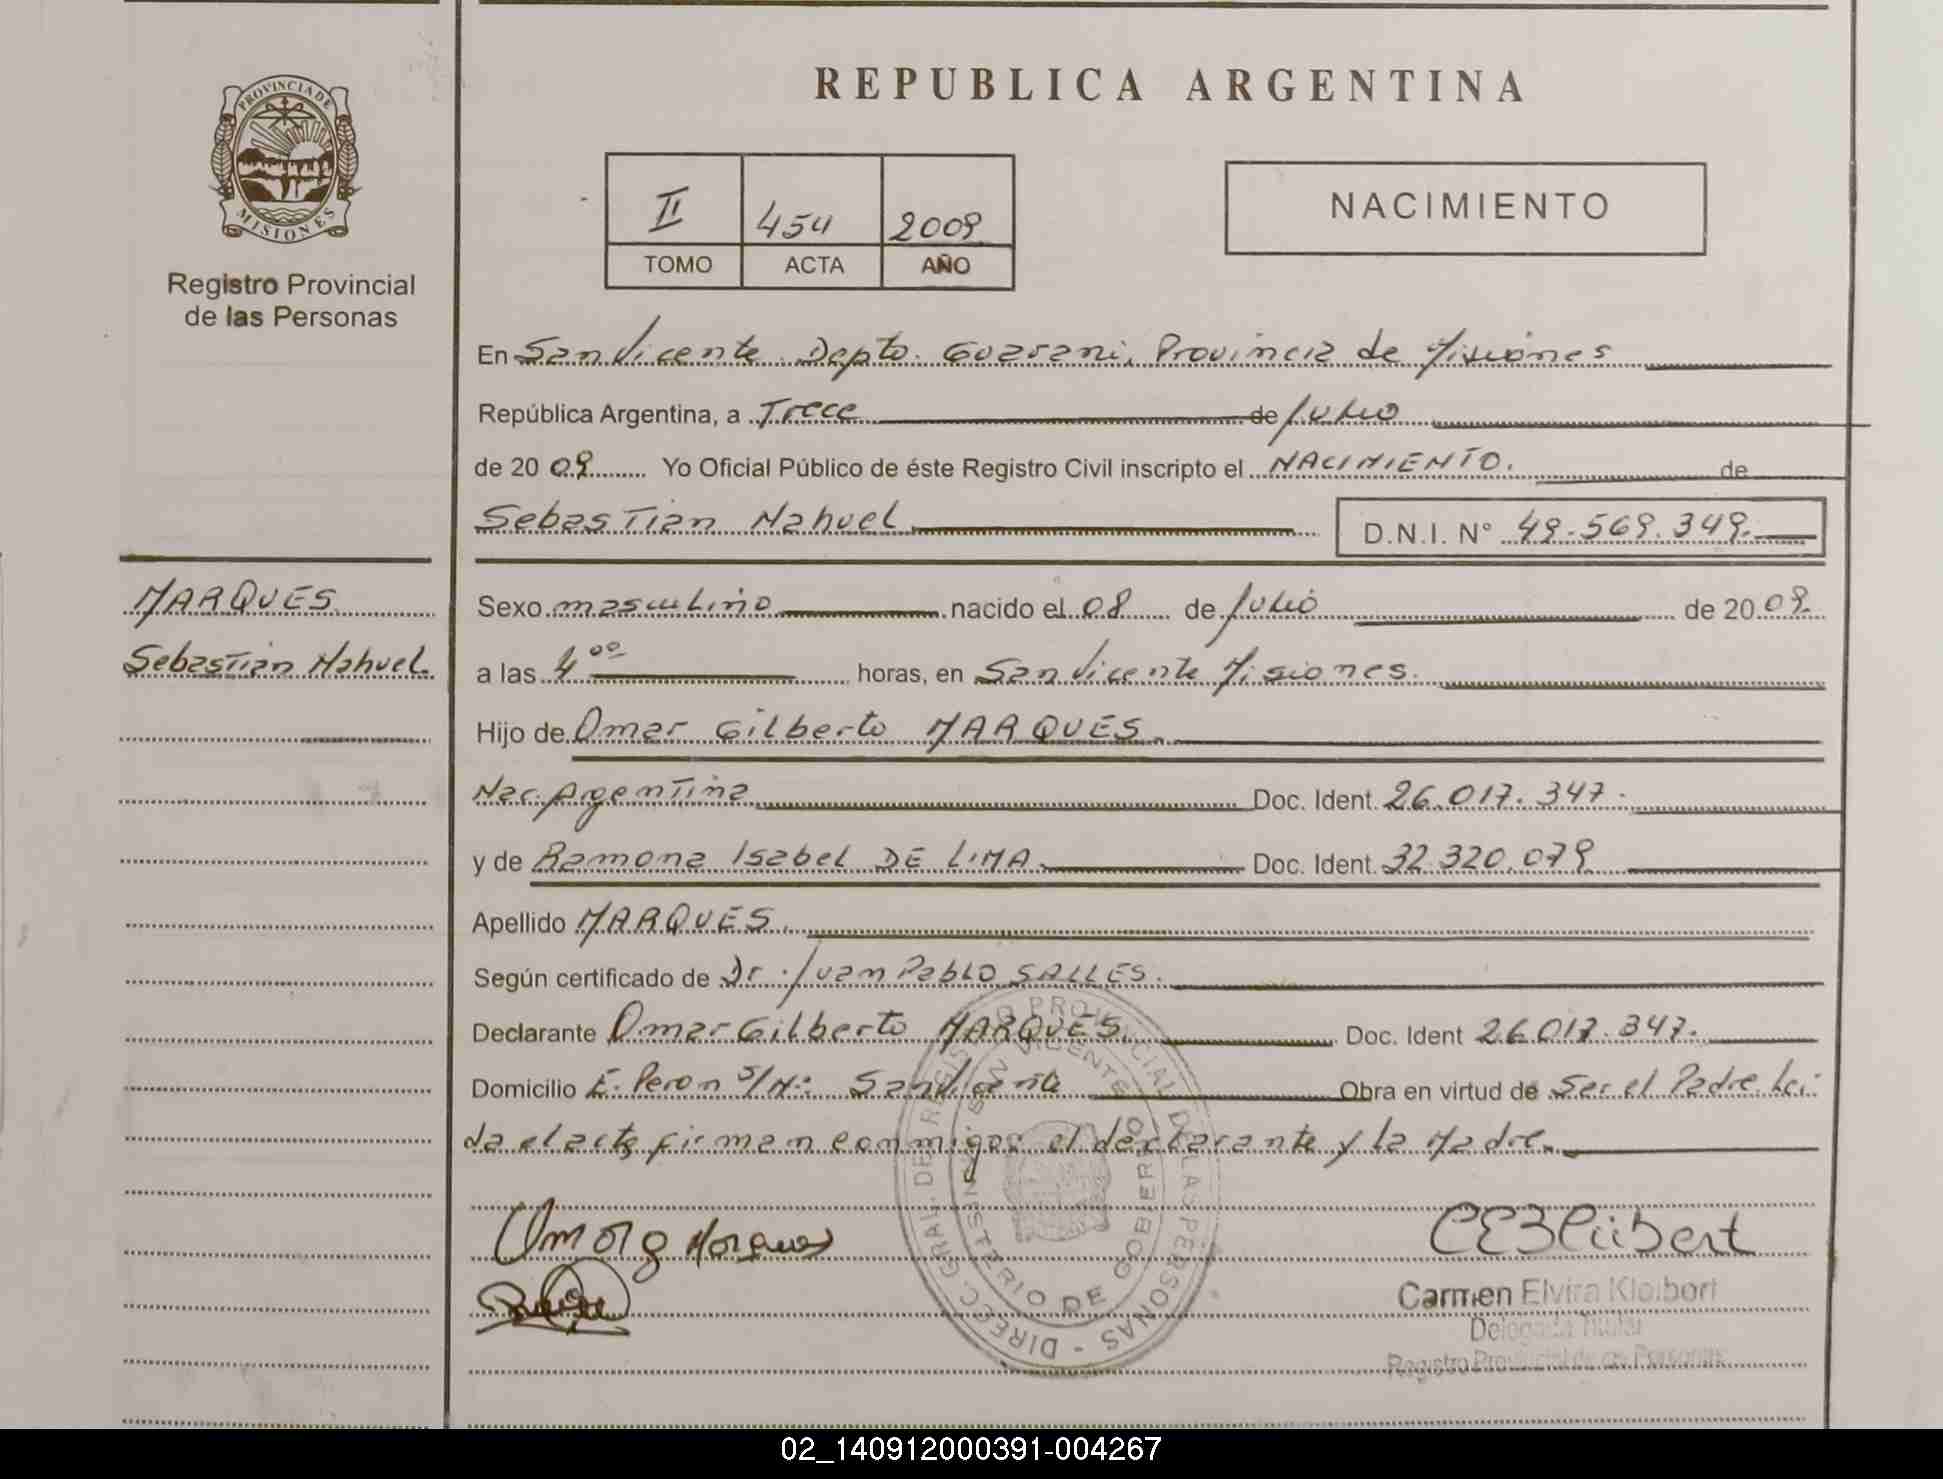 REPUBLICA ARGENTINA
PROVINCIA DE
MISIONES
Registro Provincial
de las Personas
II 454 2009
TOMO ACTA AÑO
NACIMIENTO
En San Vicente Depto. Guarani, Provincia de Misiones
República Argentina, a Trece de Julio
de 20 09 Yo Oficial Público de éste Registro Civil inscripto el NACIMIENTO. de
Sebastian Nahuel D.N.I. N° 49.569.349.
MARQUES
Sebastian Nahuel.
Sexo masculino nacido el 08 de Julio de 20 09
a las 4 00 horas, en San Vicente Misiones.
Hijo de Omar Gilberto MARQUES.
Nac. Argentina Doc. Ident. 26.017.347.
y de Ramona Isabel DE LIMA. Doc. Ident. 32.320.079
Apellido MARQUES.
Según certificado de Dr. Juan Pablo SALLES.
Declarante Omar Gilberto MARQUES. Doc. Ident 26.017.347.
Domicilio E. Peron S/N: San Vicente Obra en virtud de Ser el Padre. Lei
da el acta firman conmigo: el declarante y la Madre.
DIREC. GRAL. DE REGISTRO PROVINCIAL DE LAS PERSONAS
SAN VICENTE
MINISTERIO DE GOBIERNO
Omar G Marques
Carmen Elvira Kleibert
Delegada Titular
Registro Provincial de las Personas
02_140912000391-004267